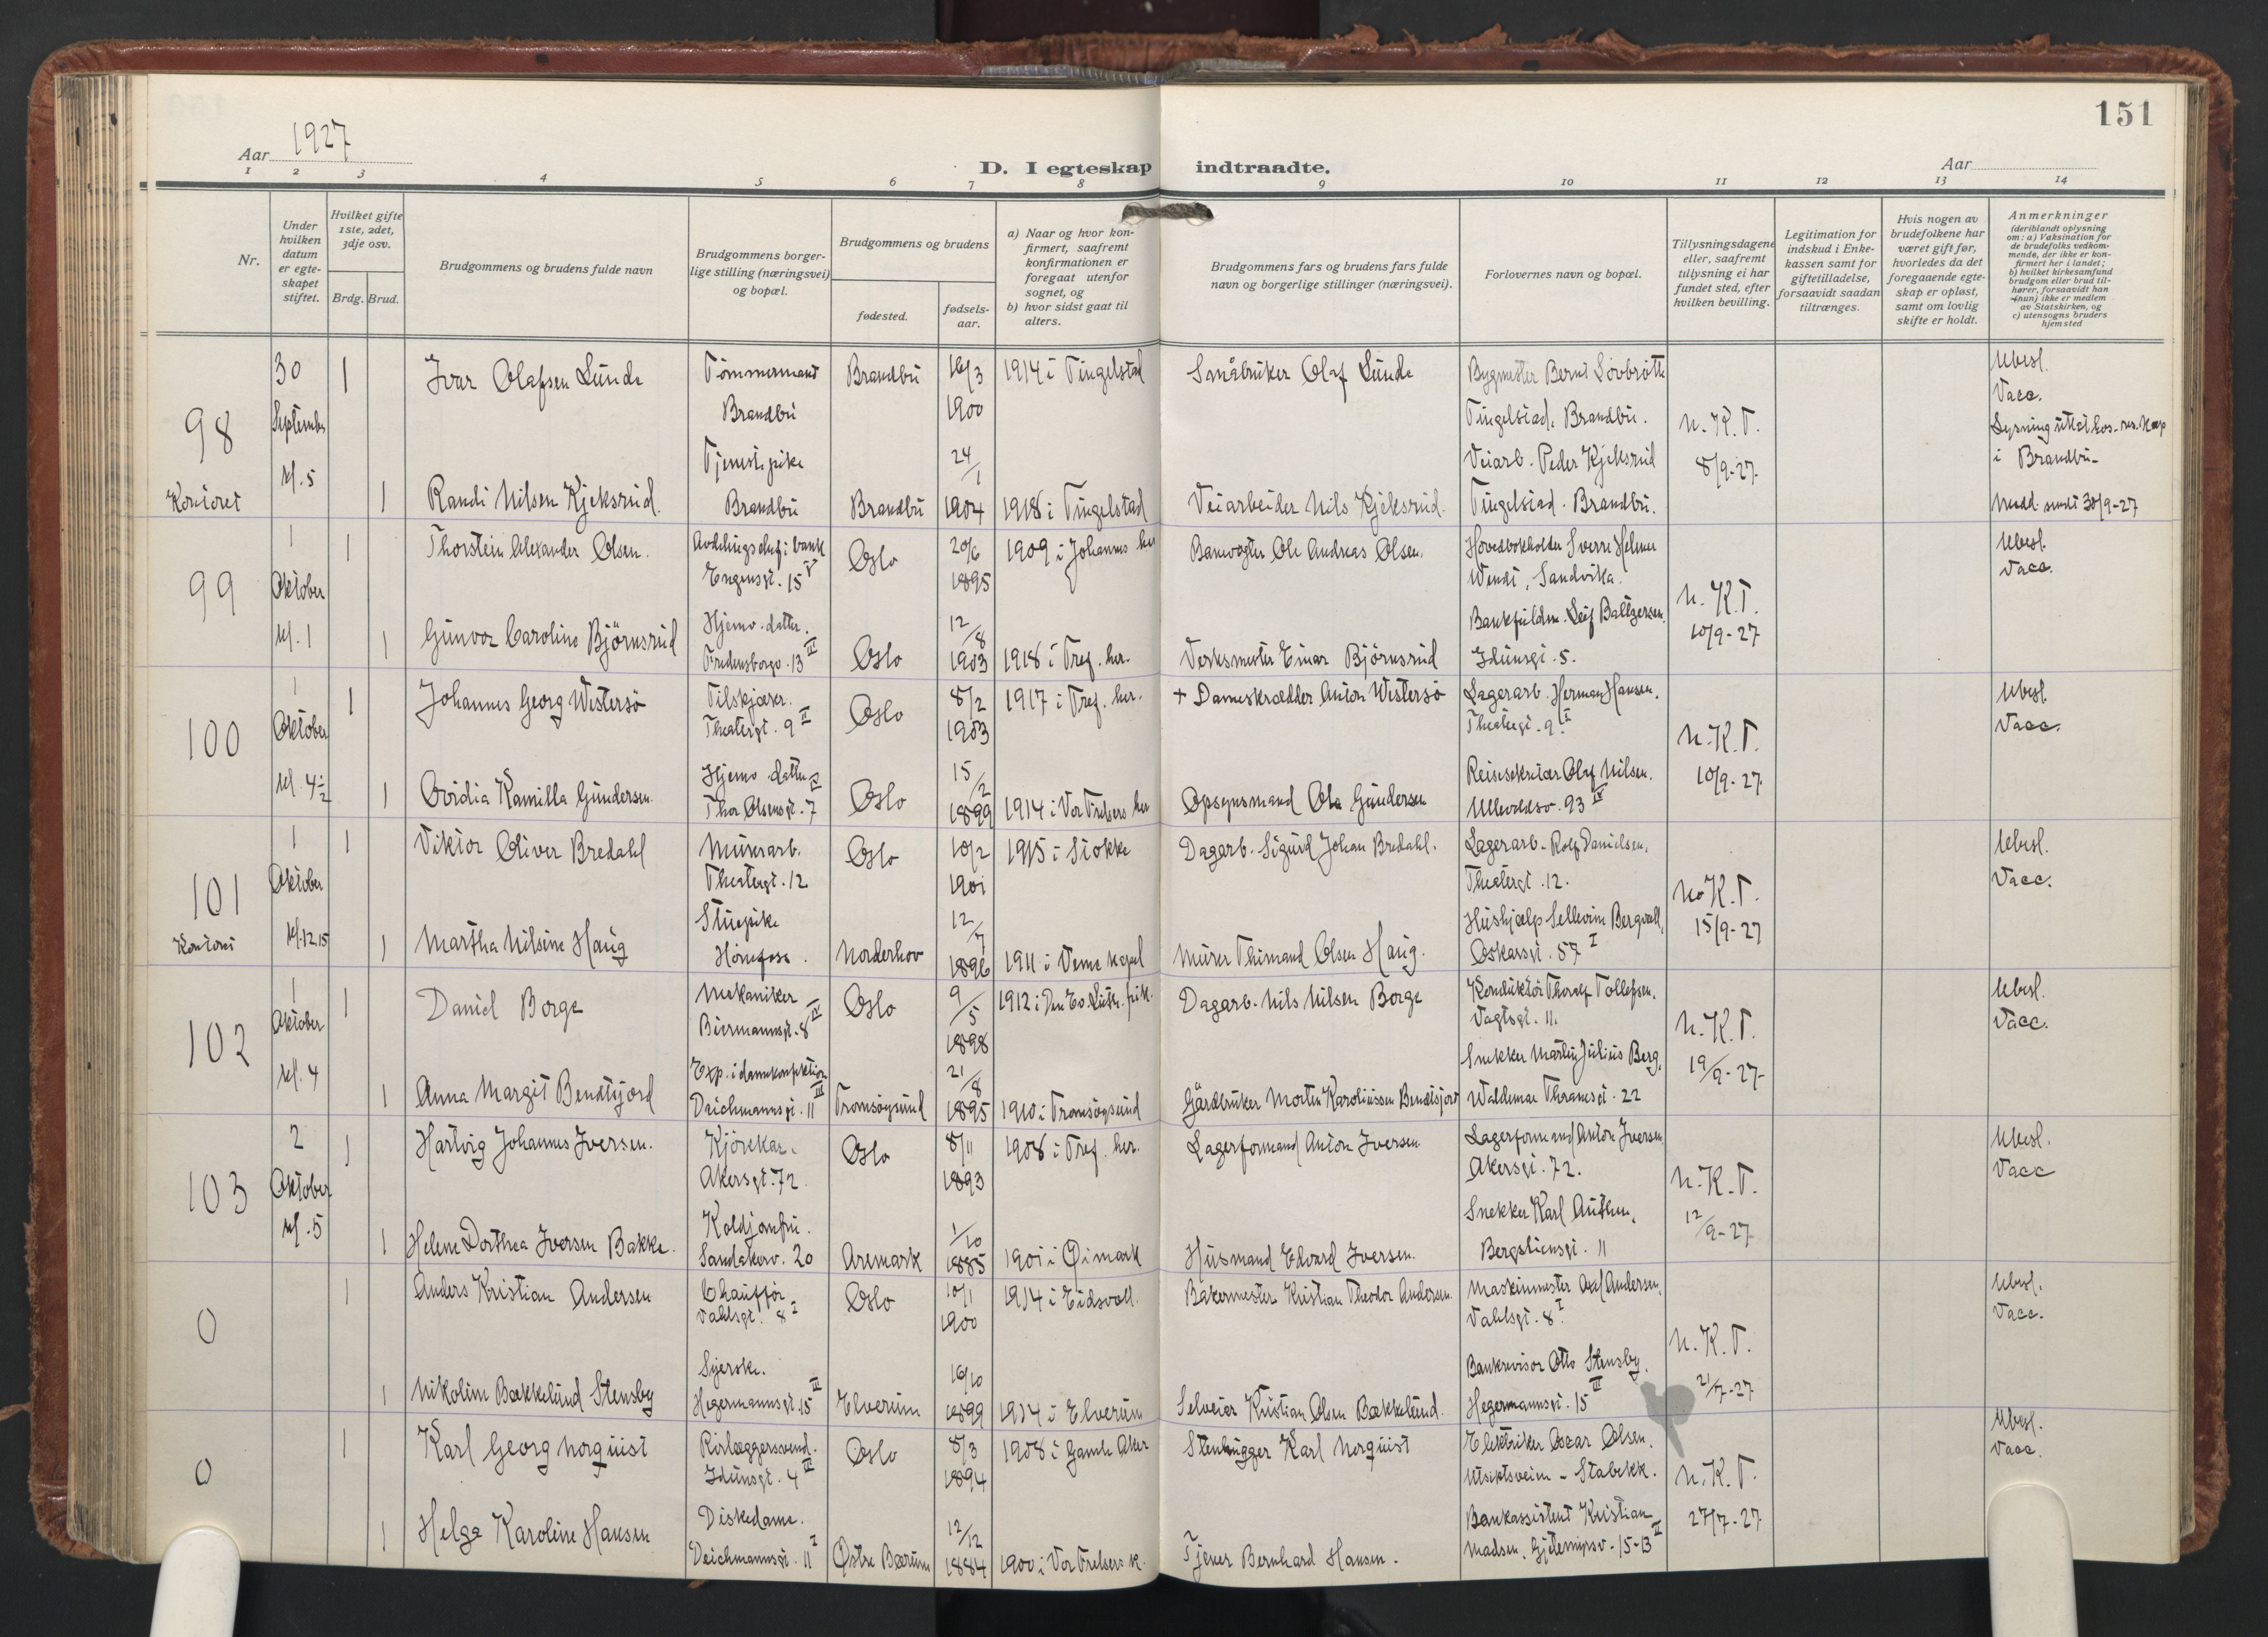 151
Aar 1927
D. I egteskap indtraadte.
Aar
1 2 3 4 5 6 7 8 9 10 11 12 13 14
Nr.
Under hvilken datum er egteskapet stiftet.
Hvilket gifte 1ste, 2det, 3dje osv.
Brdg. Brud.
Brudgommens og brudens fulde navn
Brudgommens borgerlige stilling (næringsvei) og bopæl.
Brudgommens og brudens
fødested.
fødselsaar.
a) Naar og hvor konfirmert, saafremt konfirmationen er foregaat utenfor sognet, og
b) hvor sidst gaat til alters.
Brudgommens fars og brudens fars fulde navn og borgerlige stillinger (næringsvei).
Forlovernes navn og bopæl.
Tillysningsdagene eller, saafremt tillysning ei har fundet sted, efter hvilken bevilling.
Legitimation for indskud i Enkekassen samt for giftetilladelse, forsaavidt saadan tiltrænges.
Hvis nogen av brudefolkene har været gift før, hvorledes da det foregaaende egteskap er opløst, samt om lovlig skifte er holdt.
Anmerkninger (deriblandt oplysning om: a) Vaksination for de brudefolks vedkommende, der ikke er konfirmert her i landet; b) hvilket kirkesamfund brudgom eller brud tilhører, forsaavidt han (hun) ikke er medlem av Statskirken, og c) utensogns bruders hjemsted
98 Kontoret
30 September kl. 5
1 Ivar Olafsen Lunde
Tømmermand Brandbu
Brandbu 16/3 1900
1914 i Tingelstad
Småbruker Olaf Lunde
Bygmester Bernt Lövbrötte Tingelstad, Brandbu.
N.K.T. 8/9-27.
Ubesl. Vacc.
Lysning uttat hos res. kap i Brandbu
1 Randi Nilsen Kjeksrud.
Tjenestepike Brandbu
Brandbu 24/1 1904
1918 i Tingelstad
Veiarbeider Nils Kjeksrud.
Veiarb. Peder Kjeksrud Tingelstad. Brandbu.
Medd. sendt 30/9-27
99
1 Oktober kl. 1
1 Thorstein Alexander Olsen.
Avdelingschef i bank Engensgt. 15 V
Oslo 20/6 1895
1909 i Johannes her
Banevogter Ole Andreas Olsen.
Hovedbokholder Sverre Helmer Wendt, Sandvika.
N.K.T. 10/9-27
Ubesl. Vacc.
1 Gunvor Caroline Björnsrud
Hjemv. datter. Fredensborgv. 13 III
Oslo 12/8 1903
1918 i Tref. her.
Verksmester Einar Björnsrud
Bankfuldm. Leif Baltzersen. Idunsgt. 5.
100
1 Oktober kl. 4 1/2
1 Johannes Georg Westersö
Tilskjærer. Theatergt. 9 II
Oslo 8/2 1903
1917 i Tref. her.
+ Dameskrædder Anton Westersö
Lagerarb. Herman Hansen. Theatergt. 9 I
N.K.T. 10/9-27.
Ubesl. Vacc.
1 Ovidia Kamilla Gundersen.
Hjemv. datter Thor Olsensgt. 7 IV
Oslo 15/2 1899
1914 i Vor Frelsers her
Opsynsmand Ole Gundersen
Reisesekretær Olaf Nilsen. Ullevoldsv. 93 IV
101 Kontoret
1 Oktober kl. 12.15
1 Viktor Oliver Bredahl
Murerarb. Theatergt. 12
Oslo 10/2 1901
1915 i Stokke
Dagarb. Sigurd Johan Bredahl.
Lagerarb. Rolf Danielsen. Theatergt. 12.
N.K.T. 15/9-27
Ubesl. Vacc.
1 Martha Nilsine Haug
Stuepike Hönefoss.
Norderhov 12/7 1896
1911 i Veme kapel
Murer Thimand Olsen Haug.
Hushjælp Sellevine Bergvall, Oskarsgt. 57 I
102
1 Oktober kl. 4
1 Daniel Borge
Mekaniker Biermannsgt. 8 IV
Oslo 9/5 1898
1912 i Den Ev. Luth. frik.
Dagarb. Nils Nilsen Borge
Konduktör Thoralf Tollefsen. Vagtsgt. 11.
N.K.T. 19/9-27-
Ubesl. Vacc.
1 Anna Margit Bendtsjord
Exp. i damekonfektion Deichmannsgt. 11 III
Tromsøysund 21/8 1895
1910 i Tromsøysund
Gårdbruker Morten Karoliussen Bendtsjord
Snekker Martin Julius Berg. Waldemar Thranesgt. 22
103
2 Oktober kl. 5
1 Hartvig Johannes Iversen.
Kjörekar. Akersgt. 72.
Oslo 8/11 1893
1908 i Tref. her.
Lagerformand Anton Iversen.
Lagerformand Anton Iversen. Akersgt. 72.
N.K.T. 12/9-27
Ubesl. Vacc
1 Helene Dorthea Iversen Bakke.
Koldjomfru. Sandakerv. 20
Aremark 1/10 1885
1901 i Øimark
Husmand Edvard Iversen.
Snekker Karl Authen. Bergstiensgt. 11
0
1 Anders Kristian Andersen
Chauffør. Vahlsgt. 8 I
Oslo 10/1 1900
1914 i Eidsvoll.
Bakermester Kristian Theodor Andersen.
Maskinmester Axel Andersen. Vahlsgt. 8 I
N.K.T. 21/7-27.
Ubesl. Vacc.
1 Nikoline Bækkelund Stensby
Syerske. Hegermannsgt. 15 III
Elverum 16/10 1899
1914 i Elverum
Selveier Kristian Olsen Bækkelund.
Bankrevisor Otto Stensby. Hegermannsgt. 15 III
0
1 Karl Georg Norquist
Rörlæggersvend. Idunsgt. 4 III
Oslo 8/3 1894
1908 i Gamle Aker
Stenhugger Karl Norquist
Elektriker Oscar Olsen. Utsiktsveien - Stabekk.
N.K.T. 27/7-27.
Ubesl. Vacc.
1 Helga Karoline Hansen
Diskedame. Deichmannsgt. 11 I
Østre Bærum 12/12 1884
1900 i Vor Frelsers k.
Tjener Bernhard Hansen.
Bankassistent Kristian Madsen. Gjetemyrsv. 15-13 II